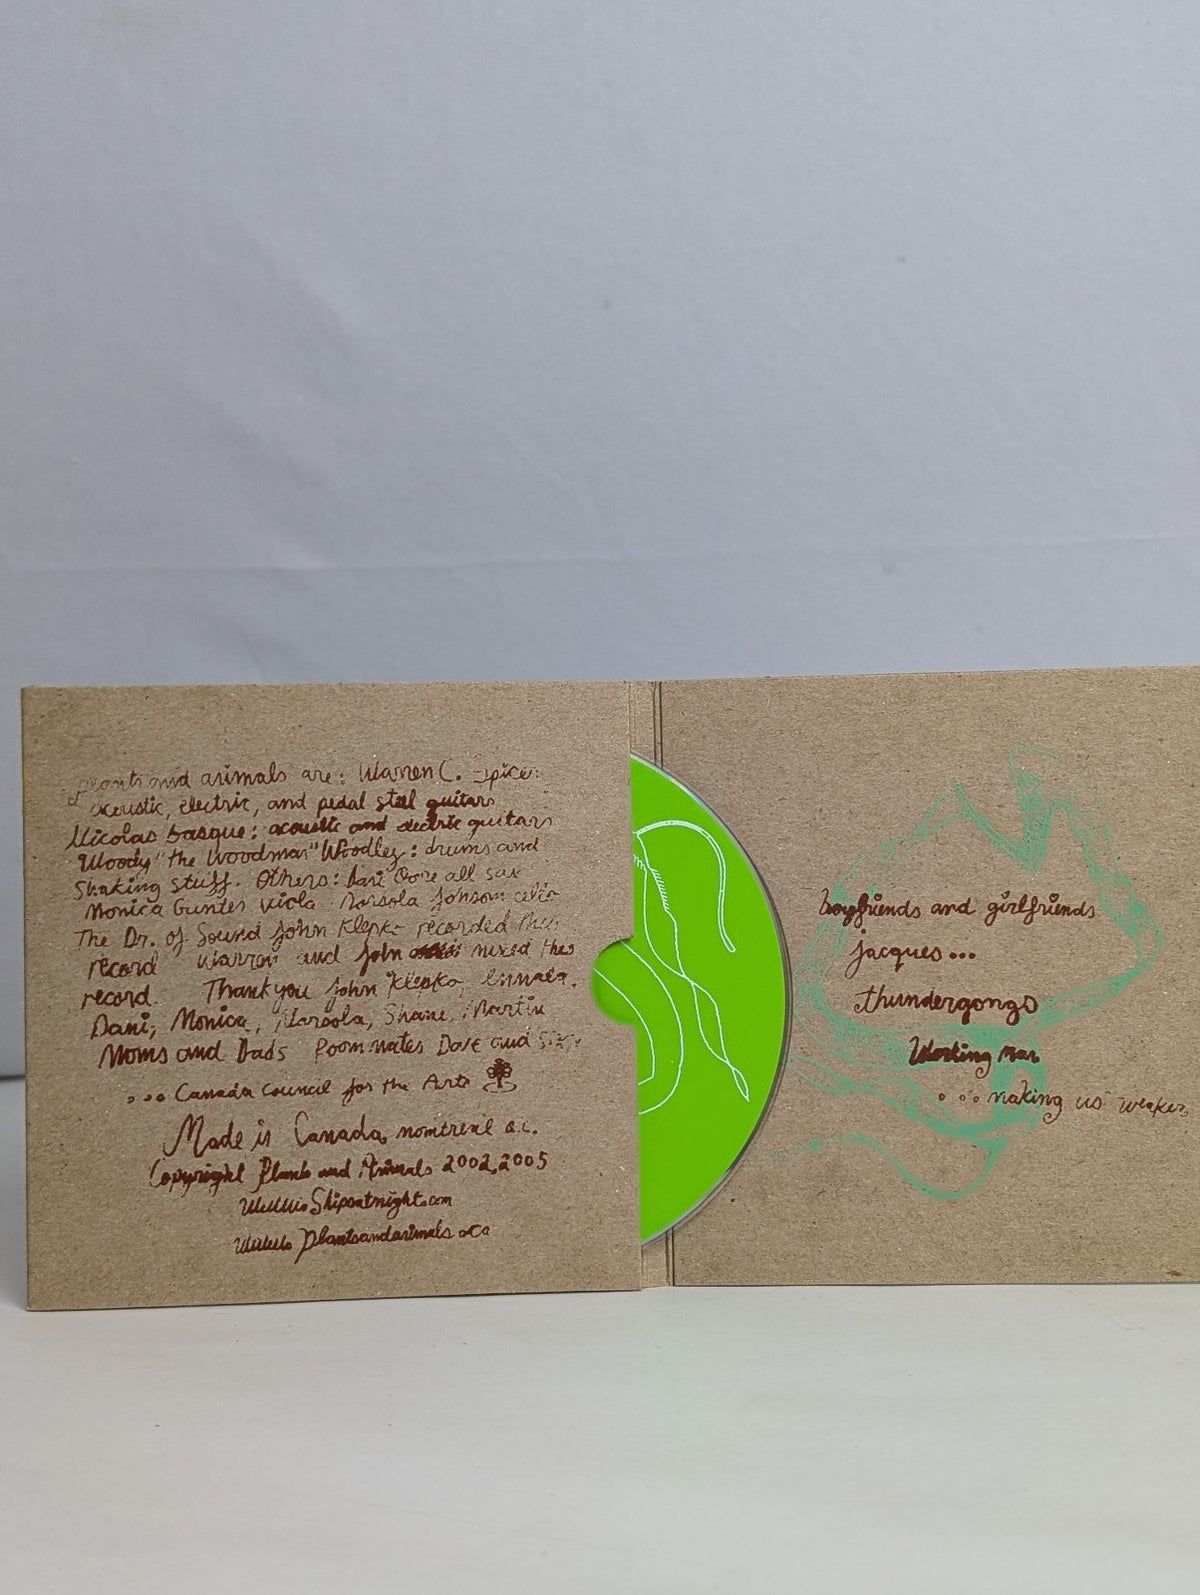 plants and animals are: Warren C. Spicer:
acoustic, electric, and pedal steel guitars
Nicolas Basque: acoustic and electric guitars
Woody "the Woodman" Woodley: drums and
Shaking stuff. Others: Dani Gore all sax
Monica Gunter viola Narsola Johnson cello
The Dr. of Sound John Klepko recorded this
record Warren and John mixed the
record. Thank you John Klepko,
Dani, Monica, Narsola, Shane, Martin
Moms and Dads Roommates Dave and
... Canada Council for the Arts
Made in Canada, montreal q.c.
Copyright Plants and Animals 2002, 2005
www.Shipsatnight.com
www.Plantsandanimals.ca
boyfriends and girlfriends
jacques...
thundergongo
Working Man
... making us weaker